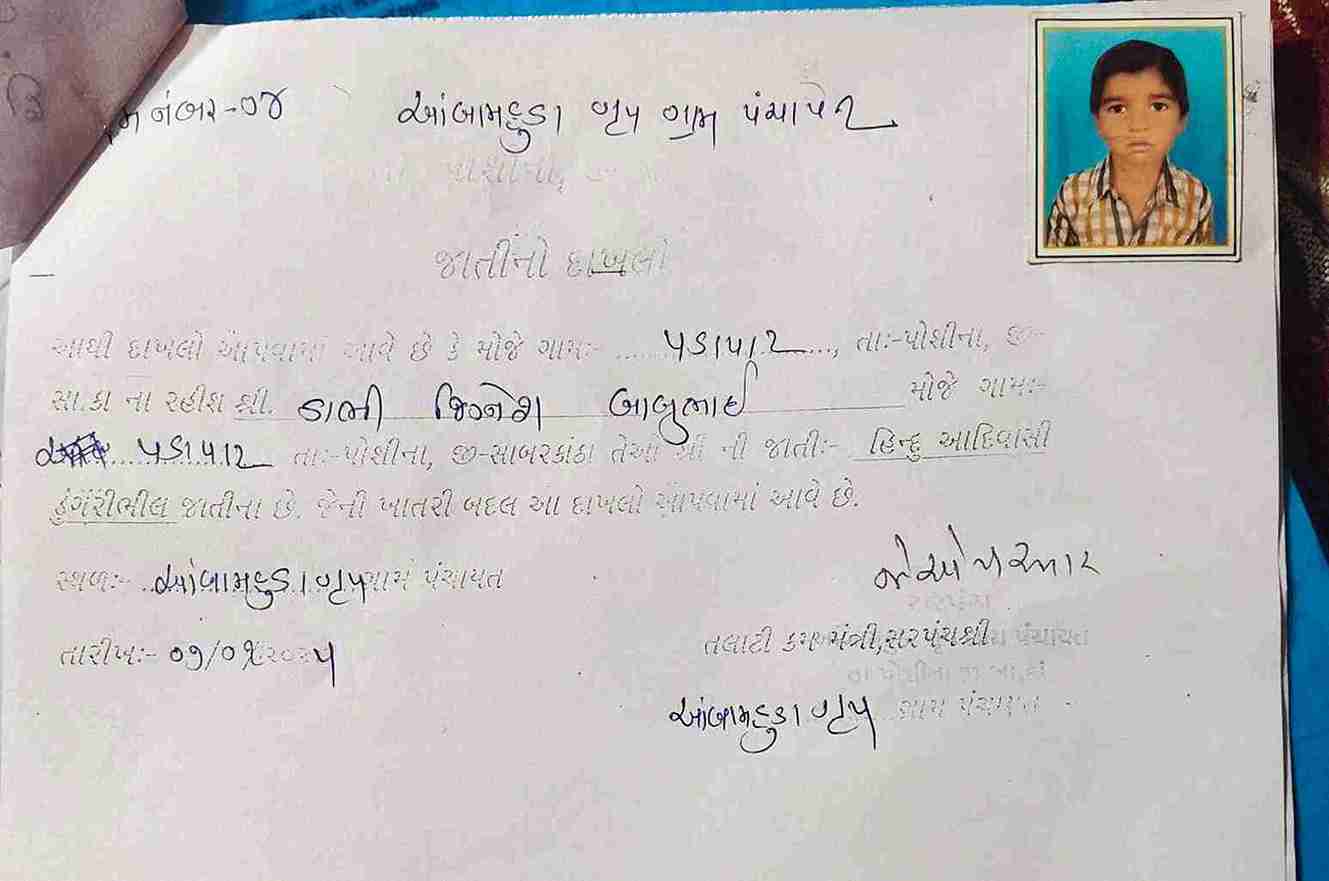 નંબર-૦૪
આંબામહુડા ગૃપ ગ્રામ પંચાયત
પોશીના,
જાતીનો દાખલો
આથી દાખલો આપવામાં આવે છે કે મોજે ગામઃ- ......પડાપાટ..., તાઃ-પોશીના, જી-
સા.કા ના રહીશ શ્રી. ડાભી જિગ્નેશ બાબુભાઈ મોજે ગામઃ-
પડાપાટ તાઃ-પોશીના, જી-સાબરકાંઠા તેઓ શ્રી ની જાતીઃ- હિન્દુ આદિવાસી
ડુંગરીભીલ જાતીના છે. જેની ખાતરી બદલ આ દાખલો આપવામાં આવે છે.
સ્થળઃ- આંબામહુડા ગૃપ ગ્રામ પંચાયત
તારીખઃ- ૦૧/૦૪/૨૦૨૫
સરપંચ
તલાટી કમ મંત્રી,સરપંચશ્રી
પંચાયત
તા પોશીના જી સા.કાં
આંબામહુડા ગૃપ ગ્રામ પંચાયત